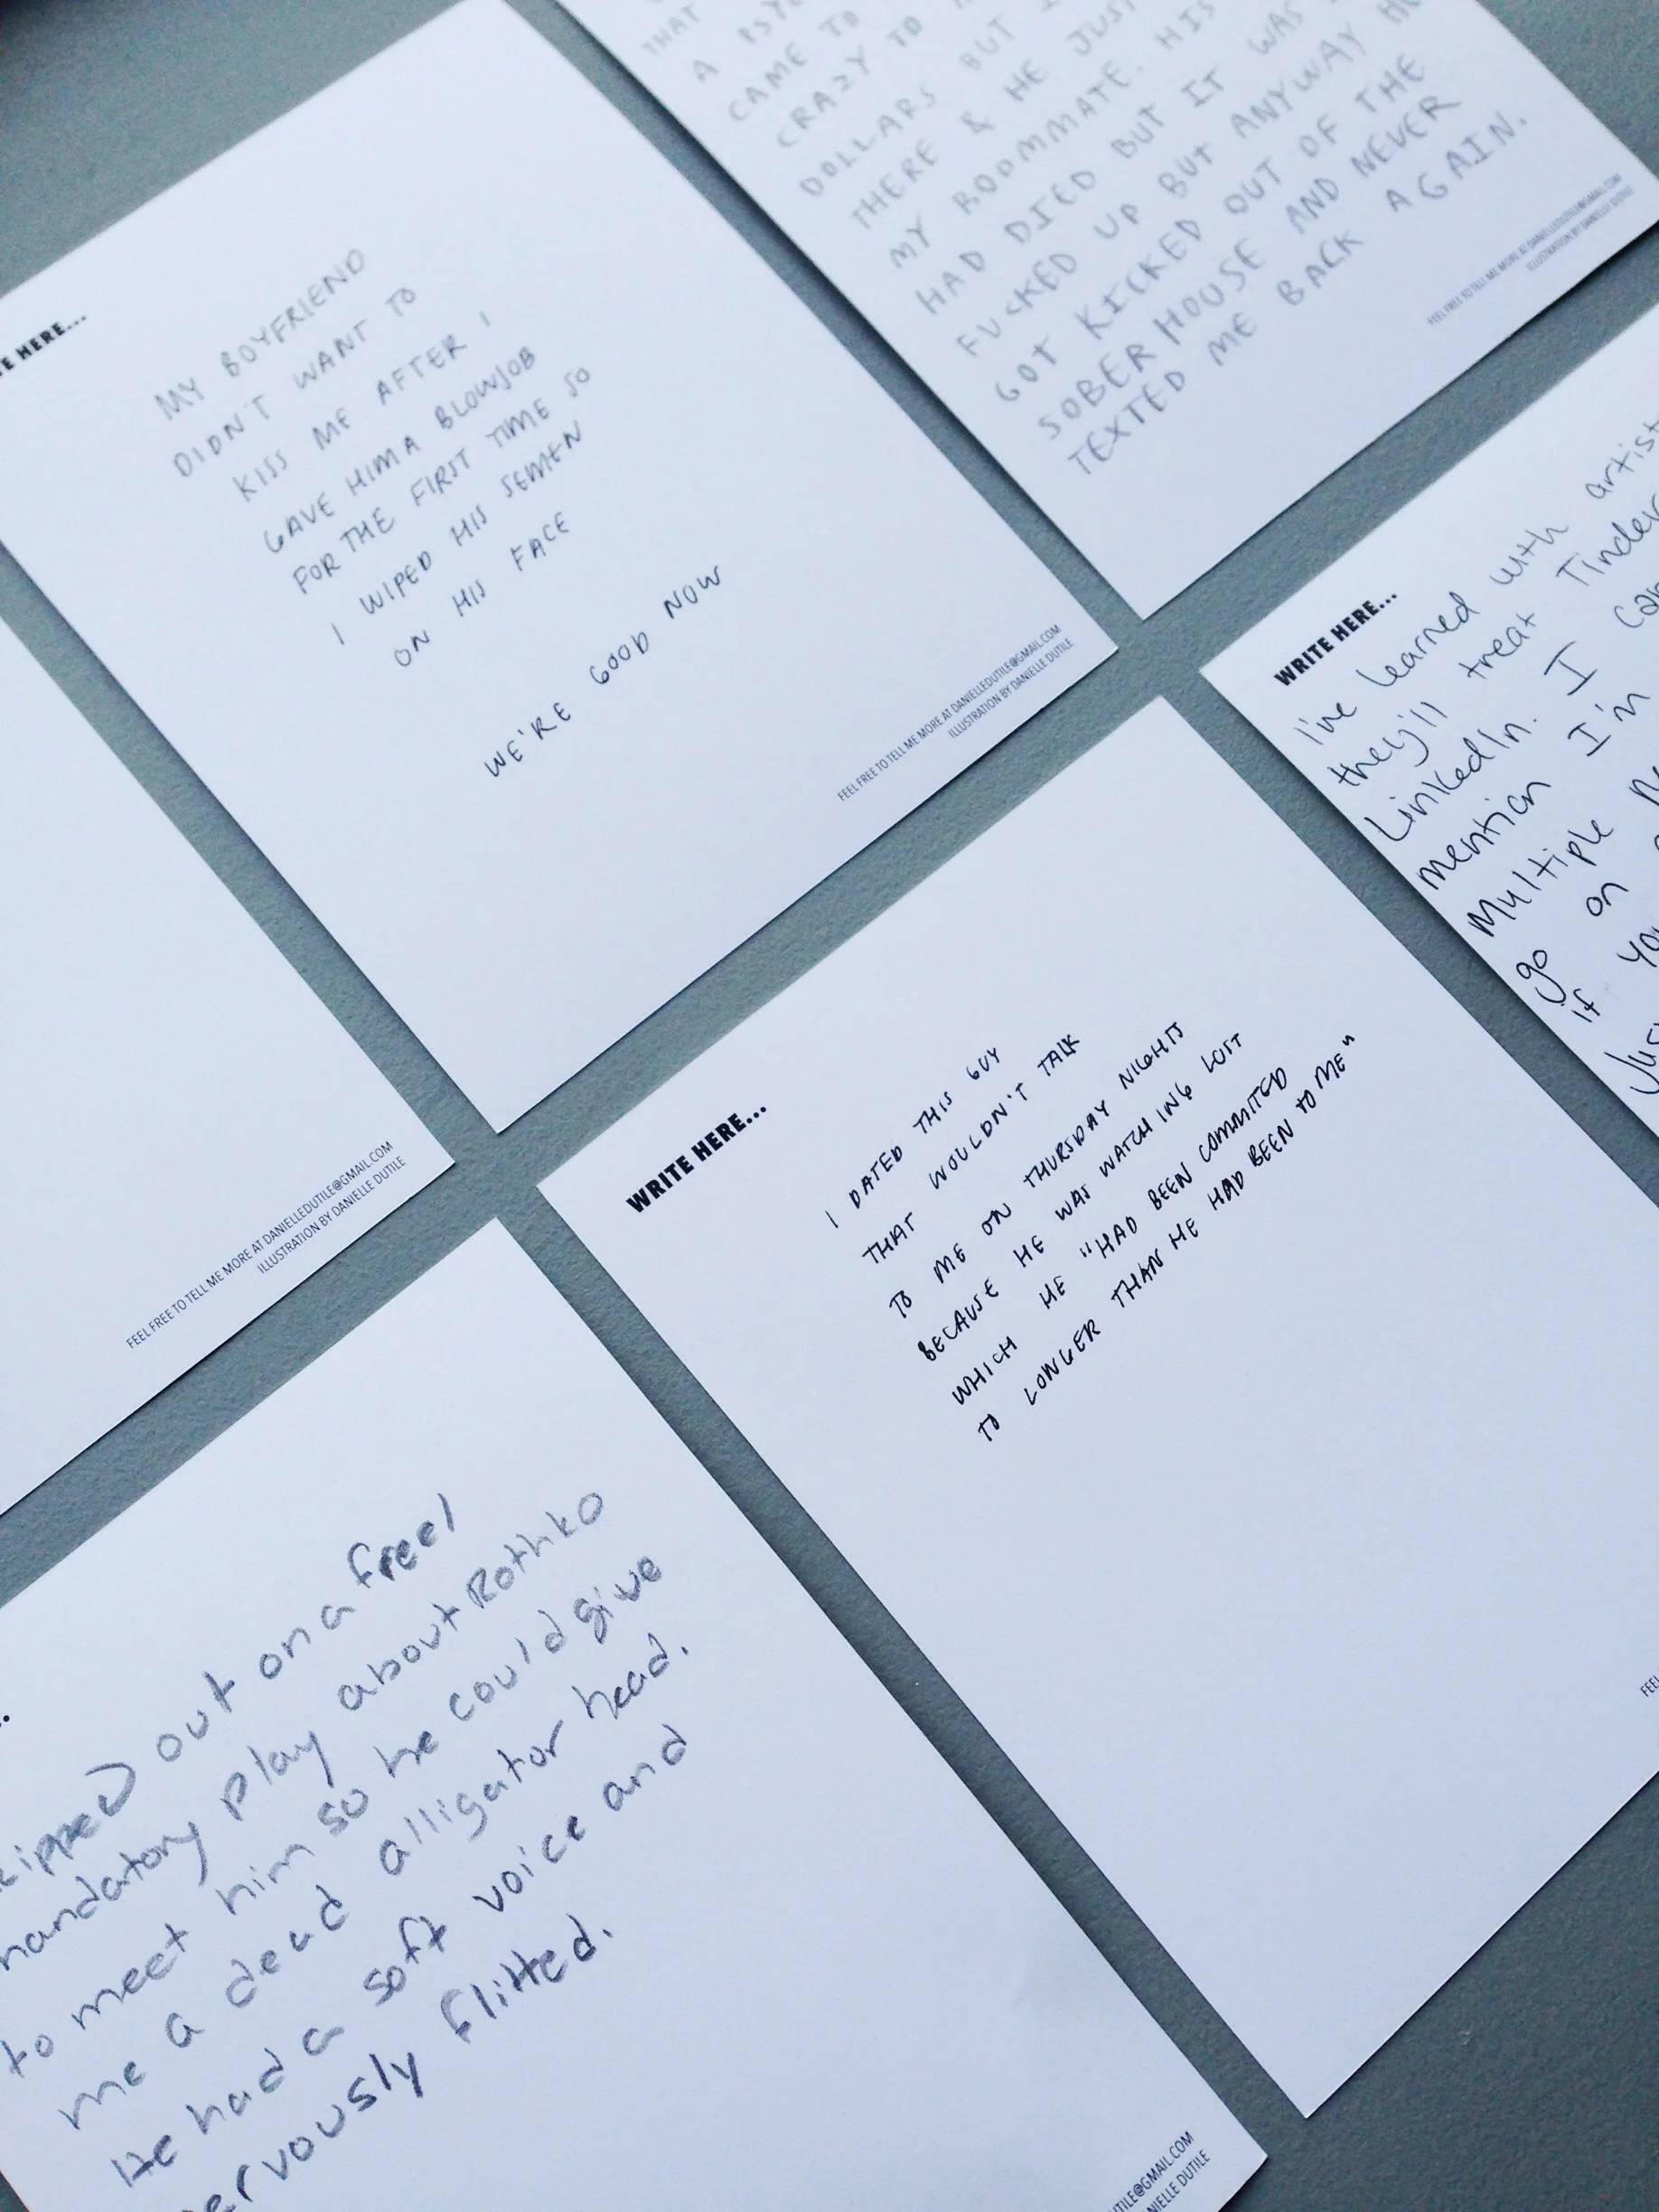 THAT
A PSY
CAME TO
CRAZY TO
DOLLARS BUT I
THERE & HE JUST
MY ROOMMATE. HIS
HAD DIED BUT IT WAS
FUCKED UP BUT ANYWAY HE
GOT KICKED OUT OF THE
SOBER HOUSE AND NEVER
TEXTED ME BACK AGAIN.
FEEL FREE TO TELL ME MORE AT DANIELLEDUTILE@GMAIL.COM
ILLUSTRATION BY DANIELLE DUTILE
TE HERE...
MY BOYFRIEND
DIDN'T WANT TO
KISS ME AFTER I
GAVE HIM A BLOWJOB
FOR THE FIRST TIME SO
I WIPED HIS SEMEN
ON HIS FACE
WE'RE GOOD NOW
FEEL FREE TO TELL ME MORE AT DANIELLEDUTILE@GMAIL.COM
ILLUSTRATION BY DANIELLE DUTILE
WRITE HERE...
I've learned with artist
they'll treat Tinder
LinkedIn. I can
mention I'm
Multiple
go on
if you
Jus
WRITE HERE...
I DATED THIS GUY
THAT WOULDN'T TALK
TO ME ON THURSDAY NIGHTS
BECAUSE HE WAS WATCHING LOST
WHICH HE "HAD BEEN COMMITED
TO LONGER THAN HE HAD BEEN TO ME"
FEEL
FEEL FREE TO TELL ME MORE AT DANIELLEDUTILE@GMAIL.COM
ILLUSTRATION BY DANIELLE DUTILE
kipped out on a free/
mandatory play about Rothko
to meet him so he could give
me a dead alligator head.
He had a soft voice and
ervously flitted.
UTILE@GMAIL.COM
NIELLE DUTILE